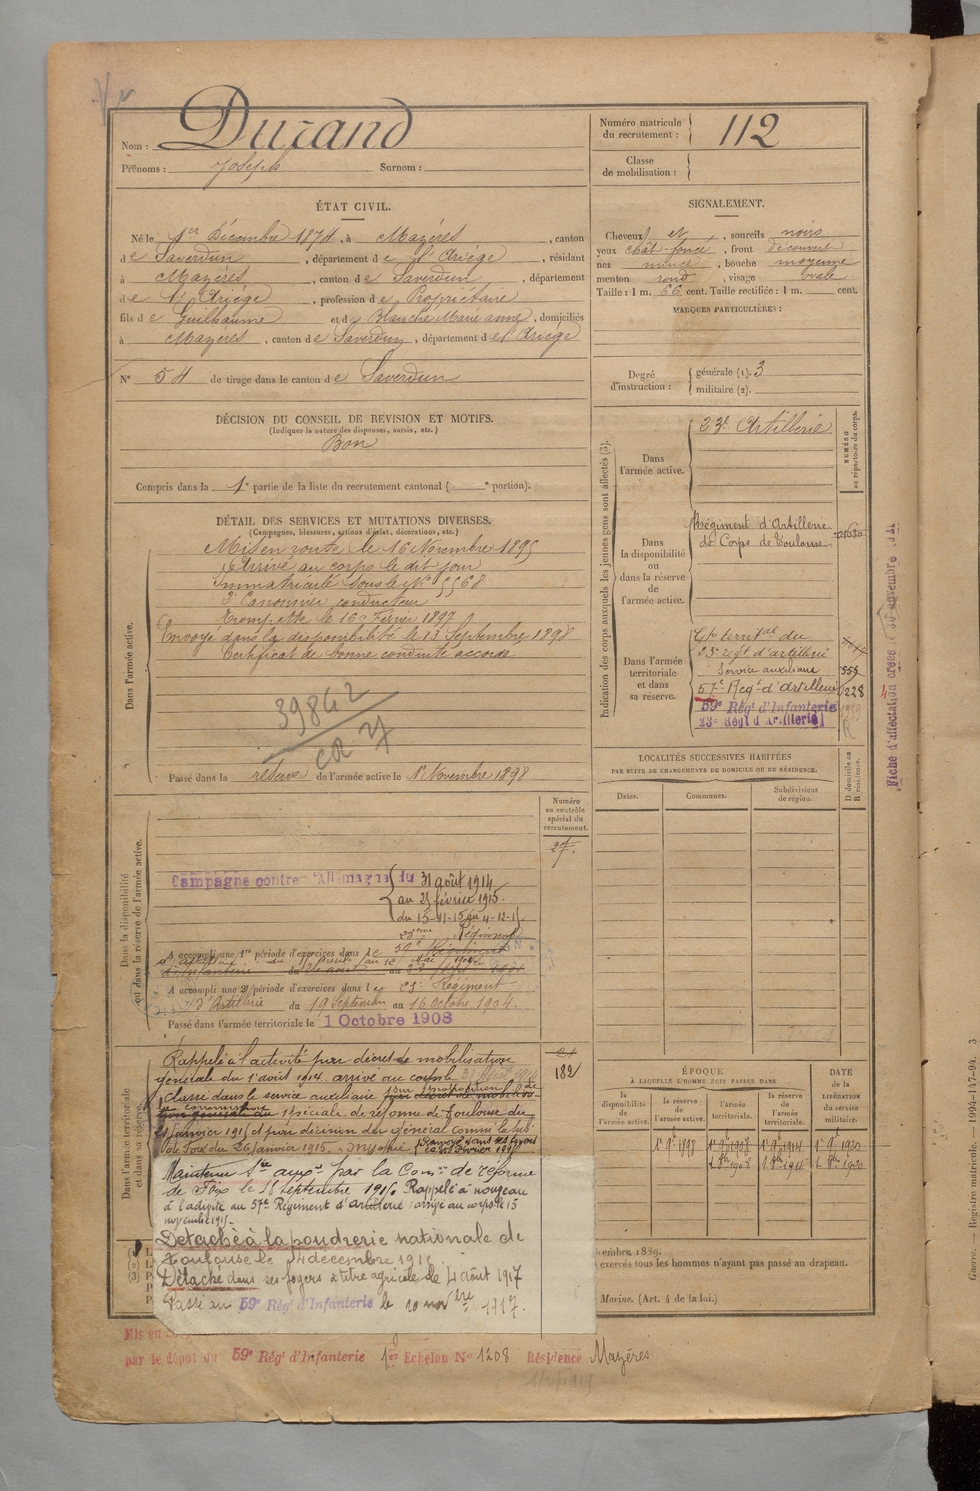 Durand
Nom :
Prénoms : Joseph Surnom :
Numéro matricule du recrutement : 112
Classe de mobilisation :
ÉTAT CIVIL.
Né le 1er Décembre 1874, à Mazères, canton
de Saverdun, département de l'Ariège, résidant
à Mazères, canton de Saverdun, département
de l'Ariège, profession de Propriétaire
fils de Guilhaume et de Blanche Marie anne, domiciliés
à Mazères, canton de Saverdun, département de l'Ariège
N° 54 de tirage dans le canton de Saverdun
SIGNALEMENT.
Cheveux et, sourcils noirs
yeux chât-foncé, front découvert
nez mince, bouche moyenne
menton rond, visage ovale
Taille : 1 m. 66 cent. Taille rectifiée : 1 m. cent.
MARQUES PARTICULIÈRES :
Degré d'instruction : générale (1). 3
militaire (2).
DÉCISION DU CONSEIL DE REVISION ET MOTIFS.
(Indiquer la nature des dispenses, sursis, etc.)
Bon
Compris dans la 1e partie de la liste du recrutement cantonal ( e portion).
DÉTAIL DES SERVICES ET MUTATIONS DIVERSES.
(Campagnes, blessures, actions d'éclat, décorations, etc.)
Dans l'armée active.
Mis en route le 16 Novembre 1895
Arrivé au corps le dit jour
Immatriculé sous le N° 5568
2e Canonnier conducteur
Trompette le 16 Février 1897
Envoyé dans la disponibilité le 13 Septembre 1898
Certificat de bonne conduite accordé
39842
Passé dans la réserve de l'armée active le 1er Novembre 1898
Indication des corps auxquels les jeunes gens sont affectés (3).
NUMÉRO au répertoire du corps.
Dans l'armée active.
23e Artillerie
Dans la disponibilité ou dans la réserve de l'armée active.
Régiment d'Artillerie
de Corps de Toulouse
Dans l'armée territoriale et dans sa réserve.
Gpe territal du
23e régt d'artillerie
Service auxiliaire 553
57e Regt d'Artillerie 1228
59e Rég' d'Infanterie
23e Régt d'Artillerie
Fiche d'affectation créée
LOCALITÉS SUCCESSIVES HABITÉES
PAR SUITE DE CHANGEMENTS DE DOMICILE OU DE RÉSIDENCE.
Dates. Communes. Subdivisions de région. D domicile ou R résidence.
Numéro au contrôle spécial du recrutement.
27.
Dans la disponibilité ou dans la réserve de l'armée active.
Campagne contre l'Allemagne du 31 août 1914
au 25 février 1915.
du 15-11-15 au 4-12-15
A accompli une 1re période d'exercices dans le
A accompli une 2e période d'exercices dans le 23e Régiment
d'Artillerie du 19 Septembre au 16 Octobre 1904.
Passé dans l'armée territoriale le 1 Octobre 1908
Dans l'armée territoriale et dans sa réserve.
182
Rappelé à l'activité par décret de mobilisation
générale du 1er août 1914. arrivé au corps le
Classé dans le service auxiliaire
spéciale de réforme de Toulouse du
21 janvier 1915 et par décision du général commt la sub
de Foix du 26 janvier 1915.
Renvoyé dans ses foyers
Maintenu Sce auxre par la Comon de réforme
de Foix le 28 septembre 1915. Rappelé à nouveau
à l'activité au 57e Régiment d'artillerie arrivé au corps le 15
novembre 1915.
Détaché à la poudrerie nationale de
Toulouse le 4 décembre 1915.
Détaché dans ses foyers à titre agricole le 4 août 1917
Passé au 59e Rég' d'Infanterie le 10 novbre 1917.
ÉPOQUE
À LAQUELLE L'HOMME DOIT PASSER DANS
la disponibilité de l'armée active. la réserve de l'armée active. l'armée territoriale. la réserve de l'armée territoriale.
DATE de la LIBÉRATION du service militaire.
1er 9bre 1898 1er 9bre 1908 1er 9bre 1914 1er 9bre 1920
1er 8bre 1908 1er 8bre 1914 1er 8bre 1920
exercés tous les hommes n'ayant pas passé au drapeau.
Marine. (Art. 4 de la loi.)
par le dépôt du 59e Rég' d'Infanterie 1er Echelon N° 1208 Résidence Mazères
Guerre. — Registre matricule. — 1994-147-94. 3